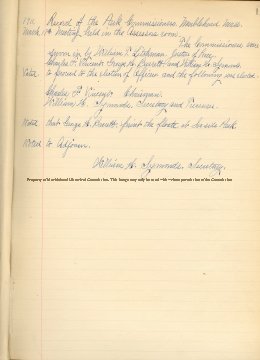 Record of the Park Commissioners Marblehead Mass.
March 17th Meeting held in the Assessors room.
The Commissioners were
sworn in by William Justice of Peace
Charles F. George H. and William H. Symonds.
Voted to proceed to the election of Officers and the following was elected
Charles F. Chairman.
William H. Symonds, Secretary and
Voted that George H. paint the floats at Seaside Park.
Voted to Adjourn.
William H. Symonds, Secretary.
Property of Marblehead Historical Commission. This image may only be used with written permission of the Commission